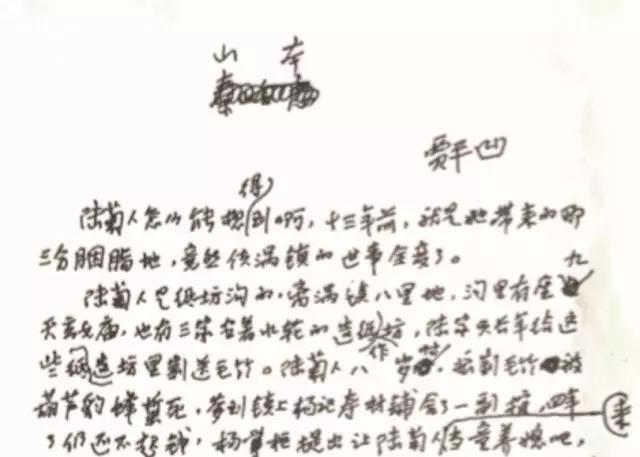 山本
贾平凹
陆菊人怎么能想得到啊，十三年前，就是她带来的那
三分胭脂地，竟然使涡镇的世事全变了。
陆菊人是纸坊沟的，离涡镇八里地，沟里有座九
天玄女庙，也有三家安着水轮的造纸作坊，陆家长年给这
些纸坊里割送毛竹。陆菊人八岁时，娘割毛竹被
葫芦豹蜂蜇死，爹到镇上杨记寿材铺赊了一副棺，四年
了仍还不起钱，杨掌柜提出让陆菊人来当童养媳吧，